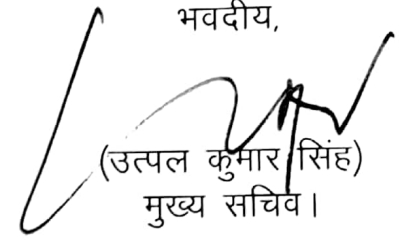 भवदीय,
(उत्पल कुमार सिंह)
मुख्य सचिव।